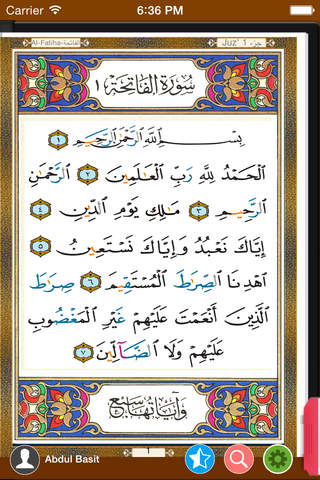 Carrier 6:36 PM
Al-Fatiha-الفاتحة Juz' 1 جزء
سُورَةُ الفَاتِحَةِ ١
بِسْمِ اللَّهِ الرَّحْمَٰنِ الرَّحِيمِ ١
الْحَمْدُ لِلَّهِ رَبِّ الْعَالَمِينَ ٢ الرَّحْمَٰنِ
الرَّحِيمِ ٣ مَالِكِ يَوْمِ الدِّينِ ٤
إِيَّاكَ نَعْبُدُ وَإِيَّاكَ نَسْتَعِينُ ٥
اهْدِنَا الصِّرَاطَ الْمُسْتَقِيمَ ٦ صِرَاطَ
الَّذِينَ أَنْعَمْتَ عَلَيْهِمْ غَيْرِ الْمَغْضُوبِ
عَلَيْهِمْ وَلَا الضَّالِّينَ ٧
وَآيَاتُهَا سَبْعٌ
1
Abdul Basit